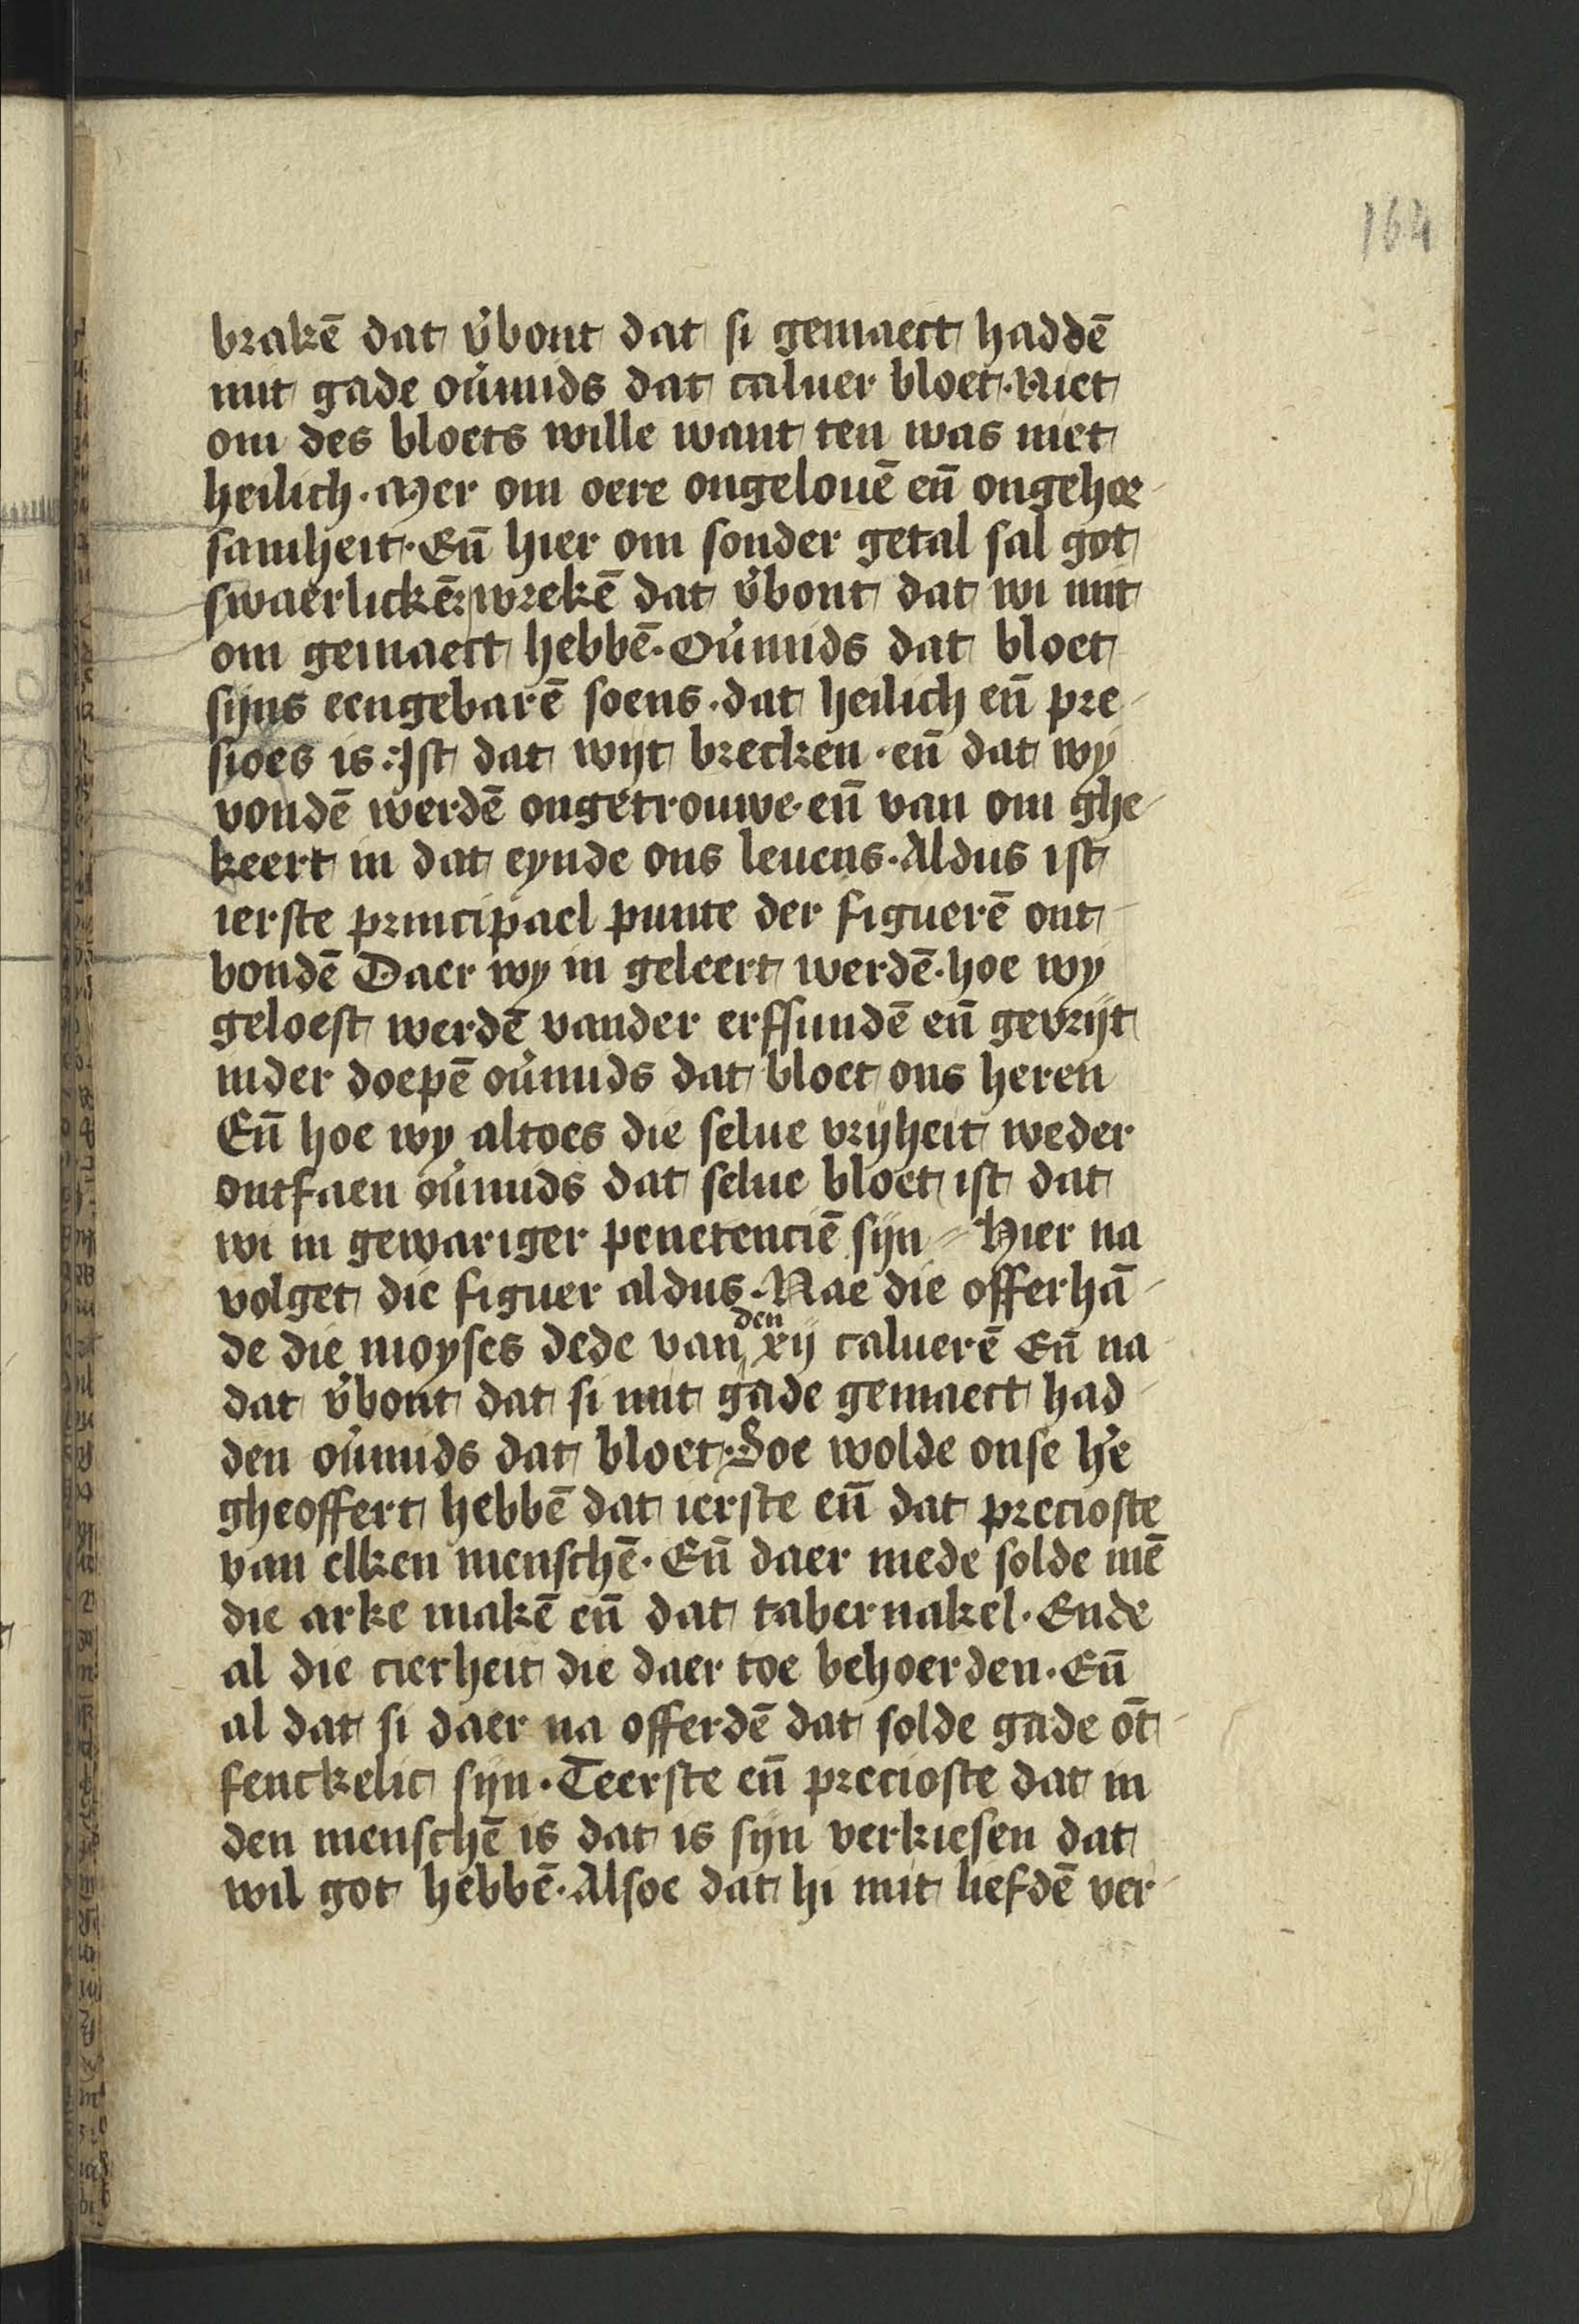 164
brakē dat v̄bont dat si gemaect haddē
mit gade ou̇mids dat caluer bloet· Niet
om des bloets wille want ten was niet
heilich· Mer om oere ongelouē eñ ongehoer-
samheit· Eñ hier om sonder getal sal got
swaerlickē wrekē dat v̄bont dat wi mit
om gemaect hebbē· Ou̇mids dat bloet
sijns eengebarē soens· dat heilich eñ pre-
sioes is· Ist dat wijt brecken· eñ dat wy
vondē werdē ongetrouwe· eñ van om ghe-
keert in dat eynde ons leuens· Aldus ist
ierste principael punte der figuerē ont-
bondē Daer wy in geleert werdē· hoe wy
geloest werdē vander erfsundē eñ gevrijt
inder doepē ou̇mids dat bloet ons heren
Eñ hoe wy altoes die selue vrijheit weder
ontfaen ou̇mids dat selue bloet ist dat
wi in gewariger penetenciē sijn Hier na
volget die figuer aldus· Nae die offerhā-
de die moyses dede van den xij caluerē Eñ na
dat v̄bont dat si mit gade gemaect had-
den ou̇mids dat bloet· Soe wolde onse hē
gheoffert hebbē dat ierste eñ dat precioste
van elken menschē· Eñ daer mede solde mē
die arke makē eñ dat tabernakel· Ende
al die cierheit die daer toe behoerden· Eñ
al dat si daer na offerdē dat solde gade ōt-
fenckelic sijn· Teerste eñ precioste dat in
den menschē is dat is sijn verkiesen dat
wil got hebbē· Alsoe dat hi mit liefdē ver-